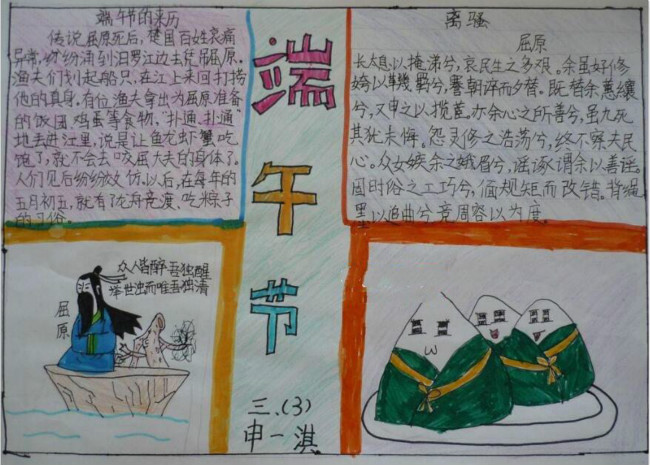 端午节的来历
传说屈原死后，楚国百姓哀痛
异常，纷纷涌到汨罗江边去凭吊屈原。
渔夫们划起船只，在江上来回打捞
他的真身。有位渔夫拿出为屈原准备
的饭团、鸡蛋等食物，“扑通、扑通”
地丢进江里，说是让鱼龙虾蟹吃
饱了，就不会去咬屈大夫的身体了。
人们见后纷纷仿效。以后，在每年的
五月初五，就有了龙舟竞渡、吃粽子
的习俗
端午节
三.(3)
申一淇
离骚
屈原
长太息以掩涕兮，哀民生之多艰。余虽好修
姱以鞿羁兮，謇朝谇而夕替。既替余以蕙纕
兮，又申之以揽茝。亦余心之所善兮，虽九死
其犹未悔。怨灵修之浩荡兮，终不察夫民
心。众女嫉余之娥眉兮，谣诼谓余以善淫。
固时俗之工巧兮，偭规矩而改错。背绳
墨以追曲兮，竞周容以为度。
众人皆醉吾独醒
举世浊而唯吾独清
屈原